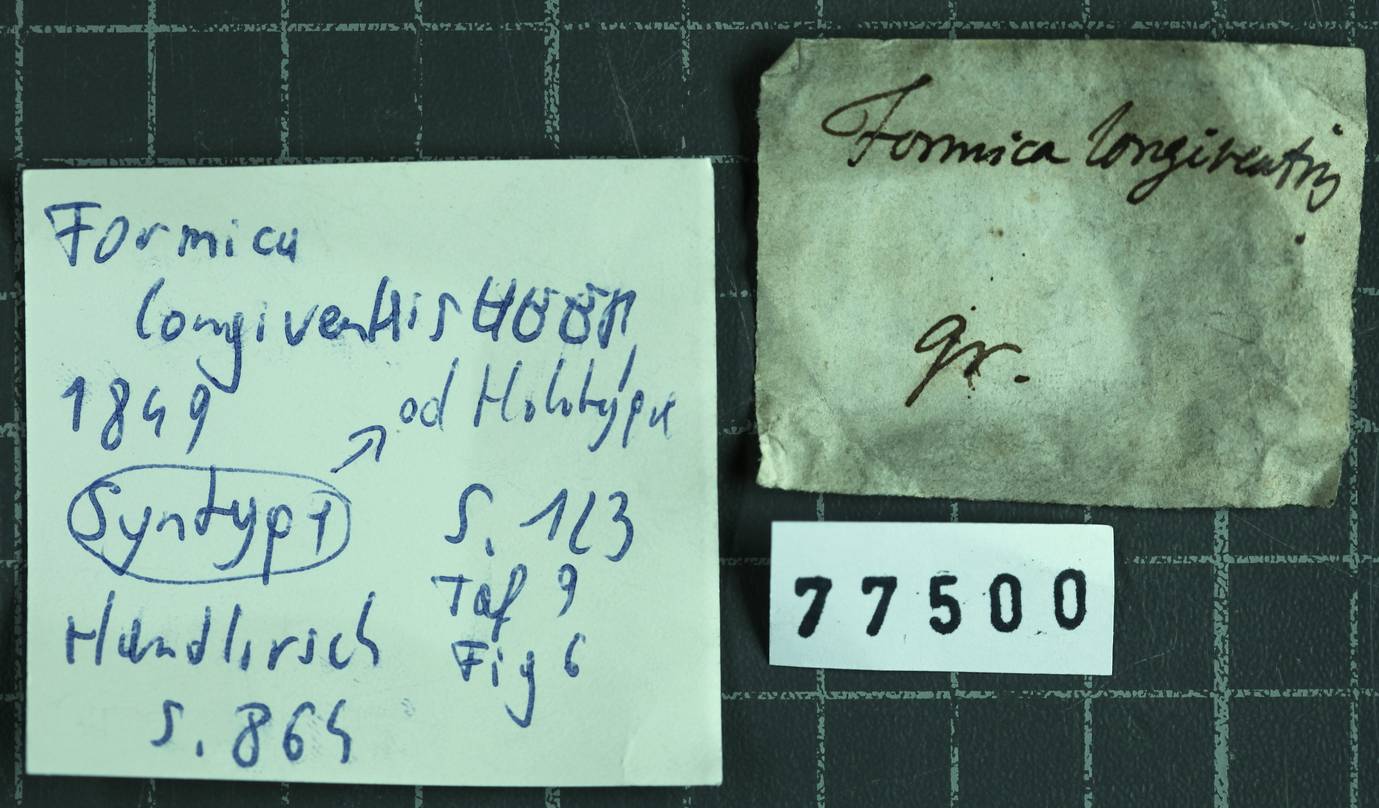 Formica
longiventris HEER
1849
od Holotype
Syntypı
S. 113
Taf 9
Fig 6
Handlirsch
S. 864
Formica longiventris
gr.
77500